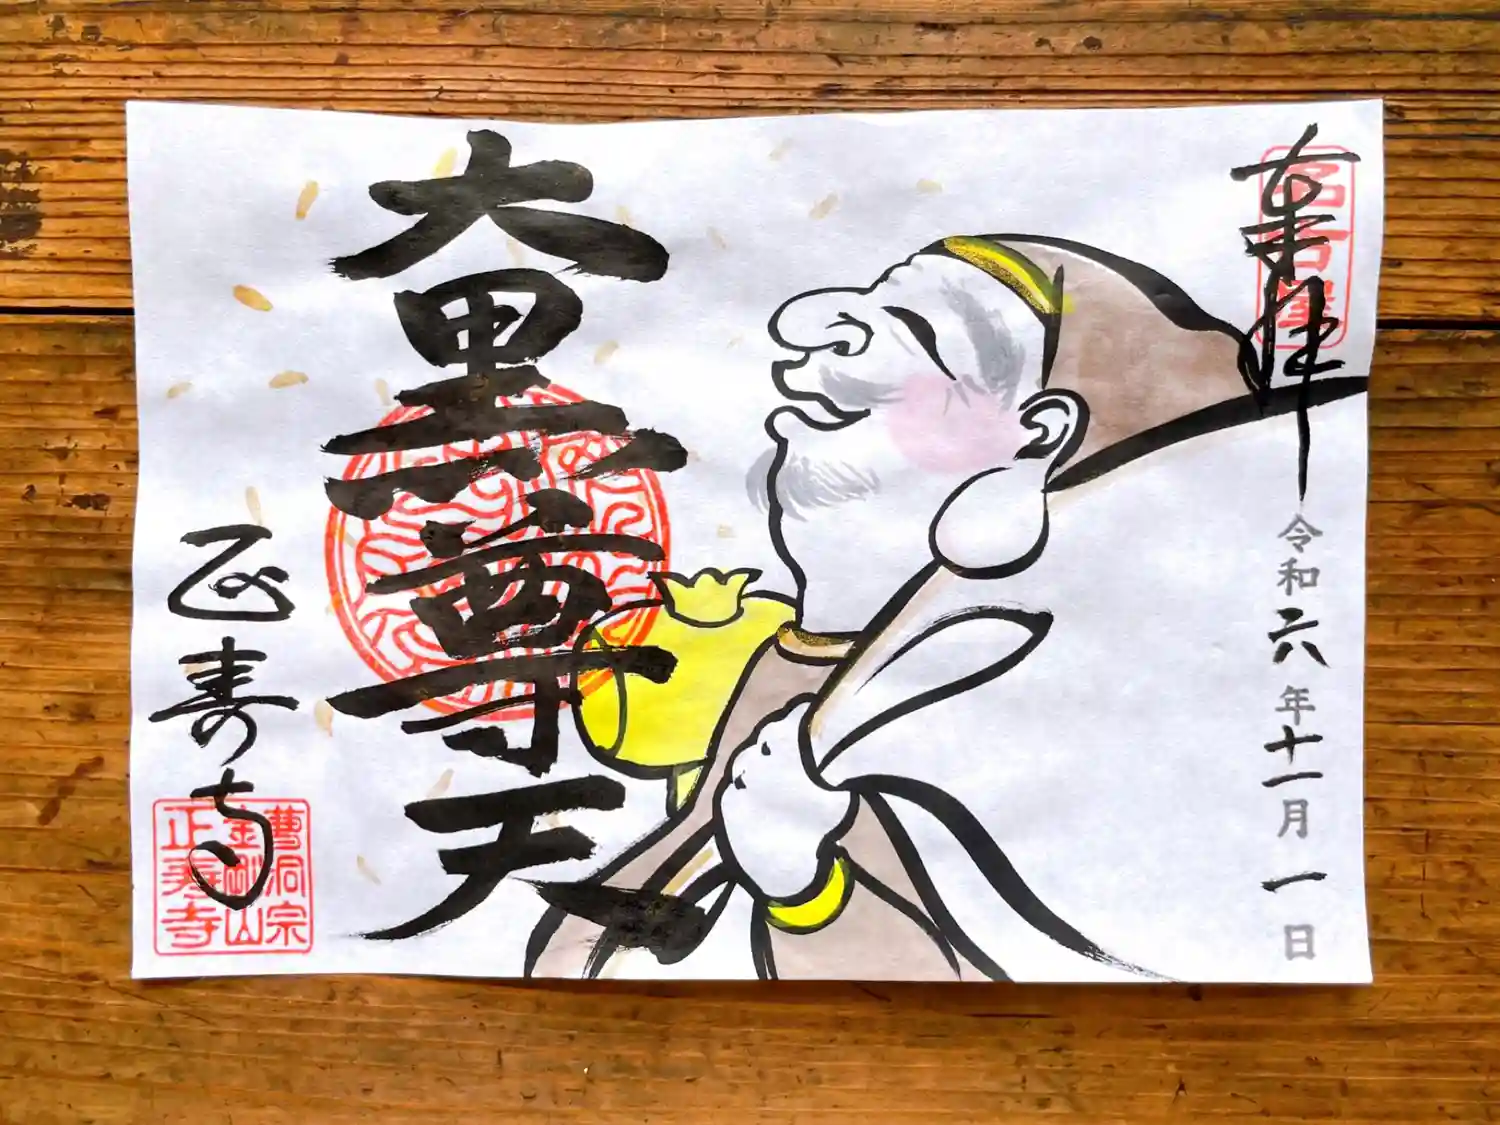 奉拝
名古屋
令和六年十一月一日
大黒尊天
正寿寺
曹洞宗
金剛山
正寿寺